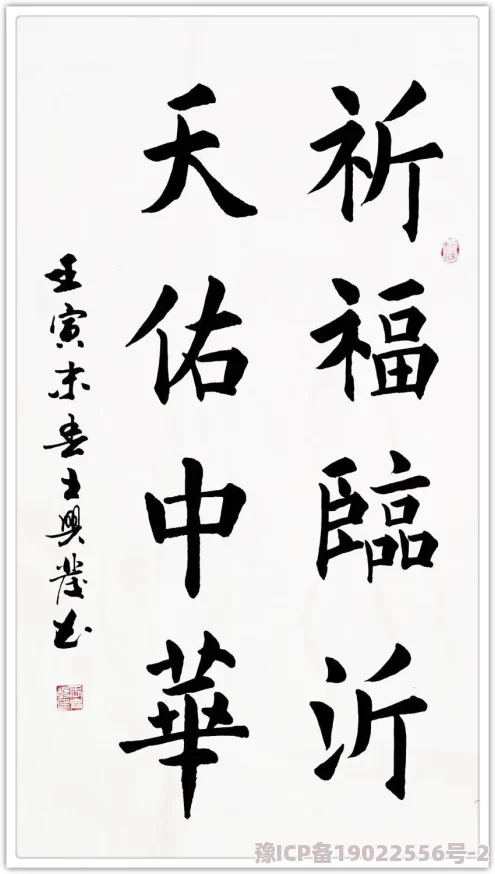 祈福臨沂
天佑中華
壬寅末春士興书
豫ICP备19022556号-2